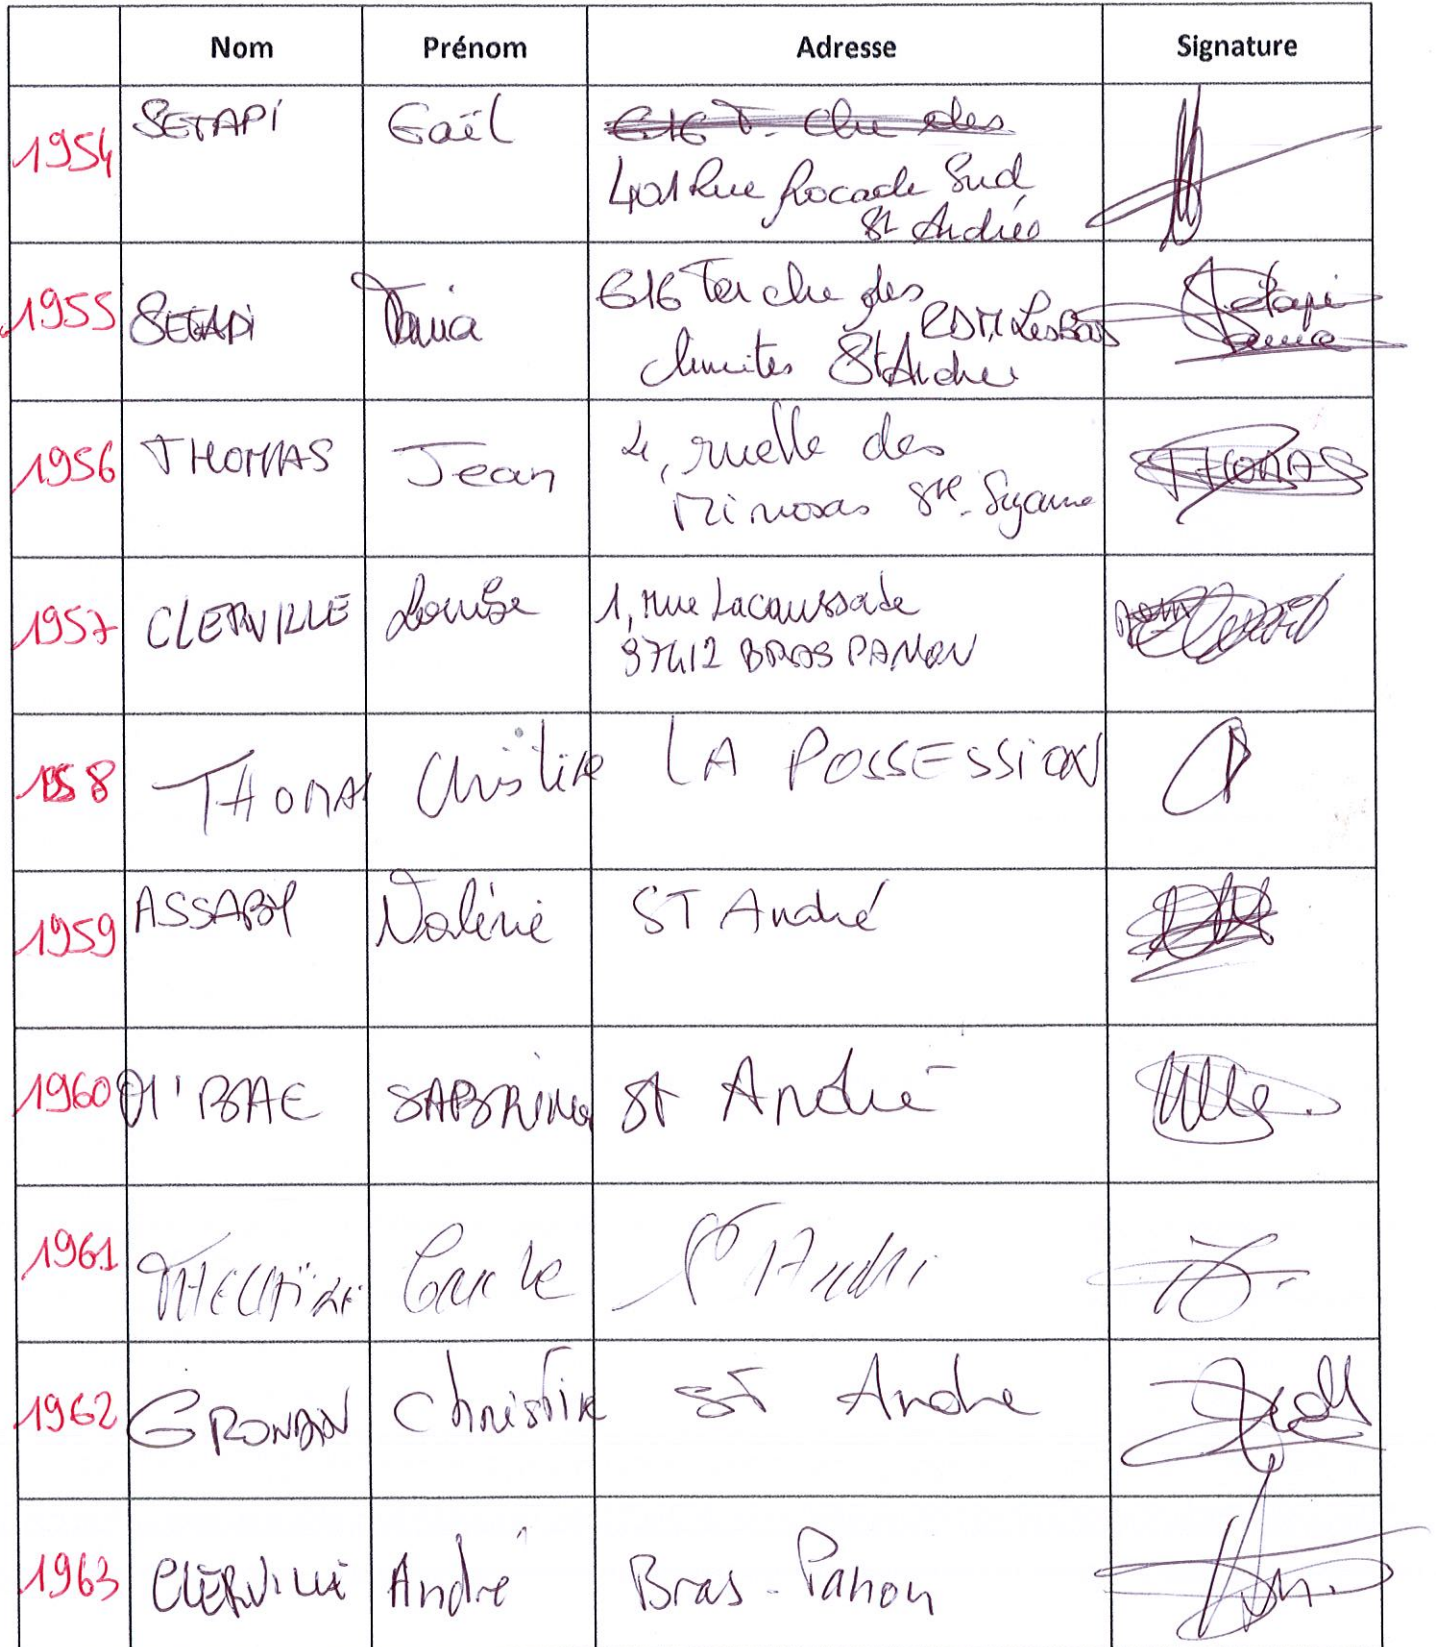 Nom Prénom Adresse Signature
1954 SETAPI Gaël 616 T. Che des
401 Rue Rocade Sud
St Andrés
1955 SETAPI Tania 616 Ter che des RDM Les Bas Setapi
limites St Andre Tania
1956 THOMAS Jean 4, ruelle des THOMAS
Mimosas Ste. Suzanne
1957 CLERVILLE Louise 1, rue Lacaussade
97412 BRAS PANON
1958 THOMAS Christine LA POSSESSION
1959 ASSABY Valérie ST André
1960 M'BAE SABRINA St André
1961 St André
1962 GRONDIN Christine ST Andre
1963 CLERVILLE André Bras-Panon